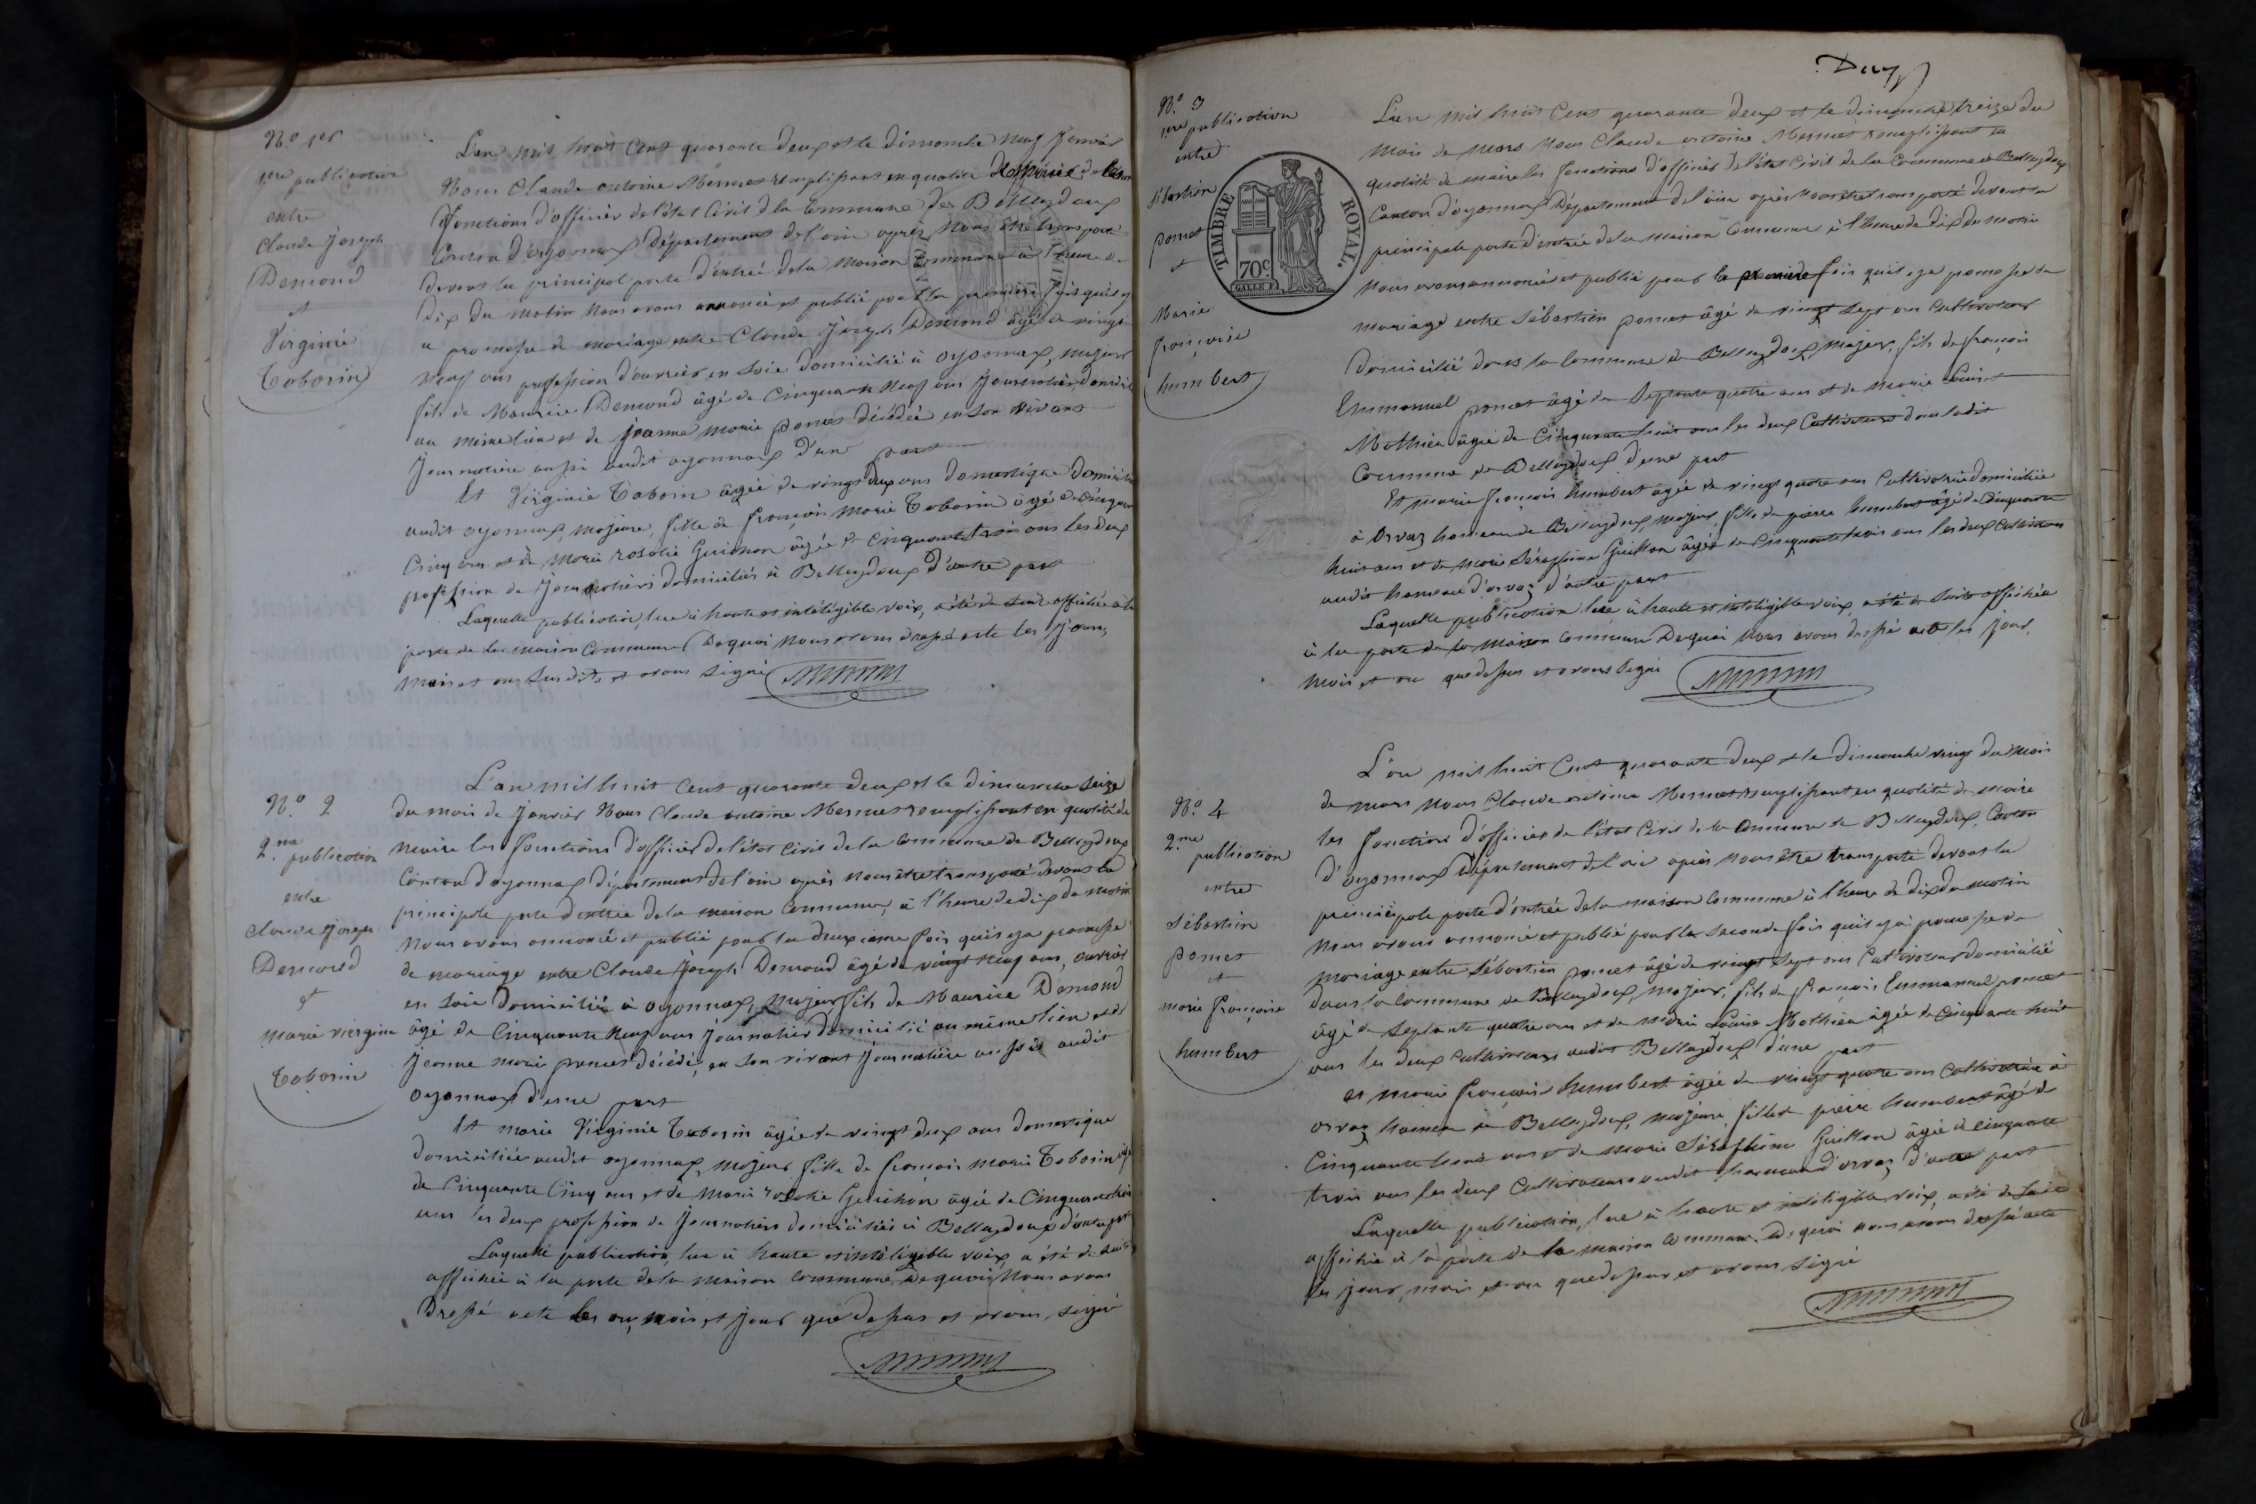 N.o 1er
1ere publication
entre
Claude Joseph
Demond
et
Virginie
Taborin
L'an mil huit cent quarante deux et le dimanche neuf Janvier
Nous Claude antoine Mermet remplissant en qualité de Maire les
fonctions d'officier de l'état Civil de la Commune de Belleydoux
Canton d'oyonnax Département de l'ain après Nous être transporté
devant la principal porte d'entrée de la Maison Commune à l'heure de
dix du matin Nous avons annoncé et publié pour la première fois qu'il y
a promesse de mariage entre Claude Joseph Demond âgé de vingt
neuf ans profession d'ouvrier en Soie domicilié à oyonnax, majeur
fils de Maurice Demond âgé de Cinquante Neuf ans Journalier domicilié
au même lieu et de Jeanne Marie poncet décédée en son vivant
Journalière aussi audit oyonnax d'une part
Et Virginie Taborin âgée de vingt deux ans domestique domiciliée
audit oyonnax, majeure, fille de françois Marie Taborin âgé de Cinquante
Cinq ans et de Marie rosalie Guichon âgée de Cinquante trois ans les deux
profession de Journaliers domiciliés à Belleydoux d'autre part
Laquelle publication, lue à haute et intéligible voix, a été de suite affichée à la
porte de la maison Commune De quoi Nous avons dressé acte les Jour,
Mois et an susdits et avons signé
N.o 2
2.me publication
entre
Claude Joseph
Demond
et
Marie Virginie
Taborin
L'an mil huit Cent quarante deux et le dimanche seize
du mois de Janvier Nous Claude antoine Mermet remplissant en qualité de
Maire les fonctions d'officier de l'état Civil de la Commune de Belleydoux
Canton d'oyonnax Département de l'ain après nous être transporté devant la
principale porte d'entrée de la maison Commune, à l'heure de dix du matin
Nous avons annoncé et publié pour la deuxième fois qu'il y a promesse
de mariage entre Claude Joseph Demond âgé de vingt neuf ans, ouvrier
en Soie Domicilié à oyonnax, Majeur fils de Maurice Demond
âgé de Cinquante Neuf ans Journalier domicilié au même lieu et de
Jeanne Marie poncet décédée, en son vivant Journalière aussi audit
oyonnax d'une part
Et Marie Virginie Taborin âgée de vingt deux ans domestique
domiciliée audit oyonnax, Majeure fille de françois Marie Taborin âgé
de Cinquante Cinq ans et de Marie rosalie Guichon âgée de Cinquante trois
ans les deux profession de Journaliers domiciliés à Belleydoux d'autre part
Laquelle publication, lue à haute et intéligible voix, a été de suite
affichée à la porte de la Maison Commune, De quoi Nous avons
Dressé acte les an, mois, et jour que dessus et avons signé
N.o 3
1ere publication
entre
Sébastien
poncet
et
Marie
françoise
humbert
TIMBRE ROYAL.
70c
L'an mil huit Cent quarante deux et le dimanche treize du
Mois de Mars Nous Claude antoine Mermet remplissant en
qualité de maire les fonctions d'officier de l'état Civil de la Commune de Belleydoux
Canton d'oyonnax Département de l'ain après Nous être transporté devant la
principale porte d'entrée de la Maison Commune à l'heure de dix du matin
Nous avons annoncé et publié pour la première fois qu'il y a promesse de
mariage entre Sébastien poncet âgé de vingt sept ans Cultivateur
Domicilié dans la Commune de Belleydoux, Majeur, fils de françois
Emmanuel poncet âgé de Septante quatre ans et de Marie Louise
Mathieu âgée de Cinquante huit ans les deux Cultivateurs dans ladite
Commune de Belleydoux d'une part
Et Marie françoise humbert âgée de vingt quatre ans Cultivatrice domiciliée
à Orvaz hameau de Belleydoux Majeure, fille de pierre humbert âgé de Cinquante
huit ans et de Marie Séraphine Guillon âgée de Cinquante trois ans les deux Cultivateurs
audit hameau d'orvaz d'autre part
Laquelle publication lue à haute et intéligible voix, a été de Suite affichée
à la porte de la Maison Commune De quoi Nous avons dressé acte les jour,
Mois et an que dessus et avons Signé
N.o 4
2.me publication
entre
Sébastien
poncet
et
Marie françoise
humbert
L'an mil huit Cent quarante deux et le dimanche vingt du Mois
de Mars Nous Claude antoine Mermet remplissant en qualité de Maire
les fonctions d'officier de l'état Civil de la Commune de Belleydoux, Canton
d'oyonnax Département de l'ain après Nous être transporté devant la
principale porte d'entrée de la maison Commune à l'heure de dix du matin
Nous avons annoncé et publié pour la seconde fois qu'il y a promesse de
mariage entre Sébastien poncet âgé de vingt sept ans Cultivateur domicilié
dans la Commune de Belleydoux, Majeur, fils de françois Emmanuel poncet
âgé de Septante quatre ans et de Marie Louise Mathieu âgée de Cinquante huit
ans les deux Cultivateurs audit Belleydoux d'une part
et Marie françoise humbert âgée de vingt quatre ans Cultivatrice à
orvaz hameau de Belleydoux, Majeure, fille de pierre humbert âgé de
Cinquante huit ans et de Marie Séraphine Guillon âgée de Cinquante
trois ans les deux Cultivateurs audit hameau d'orvaz d'autre part
Laquelle publication, lue à haute et intéligible voix, a été de suite
affichée à la porte de la maison Commune. De quoi nous avons dressé acte
les jour, mois et an que dessus et avons signé